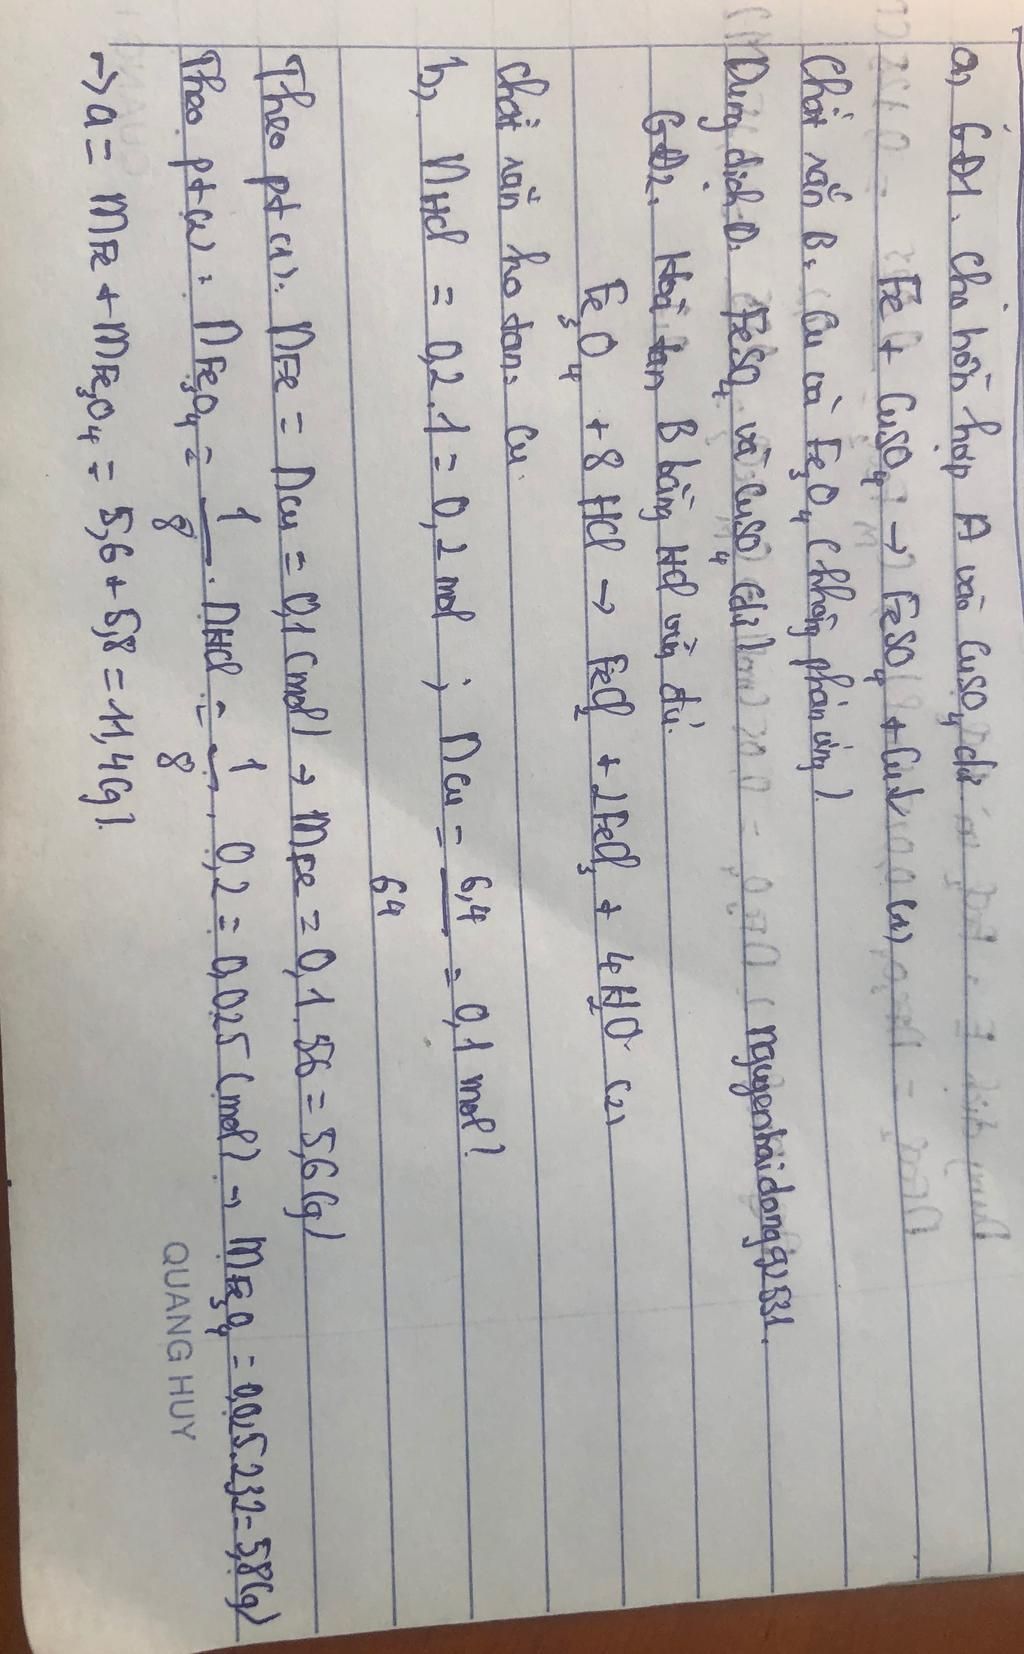 a, GĐ1. Cho hỗn hợp A vào CuSO₄ dư
Fe + CuSO₄ → FeSO₄ + Cu↓ (1)
Chất rắn B: Cu và Fe₃O₄ (không phản ứng).
Dung dịch D: FeSO₄ và CuSO₄ (dư) (nguyenhaidong92531.
GĐ2. Hoà tan B bằng HCl vừa đủ.
Fe₃O₄ + 8HCl → FeCl₂ + 2FeCl₃ + 4H₂O (2)
chất rắn ko tan: Cu.
b, nHCl = 0,2.1 = 0,2 mol ; nCu = 6,4/64 = 0,1 mol)
Theo pt (1): nFe = nCu = 0,1 (mol) → mFe = 0,1.56 = 5,6(g)
Theo pt (2): nFe₃O₄ = 1/8 . nHCl = 1/8 . 0,2 = 0,025 (mol) → mFe₃O₄ = 0,025.232 = 5,8(g)
→ a = mFe + mFe₃O₄ = 5,6 + 5,8 = 11,4(g).
QUANG HUY